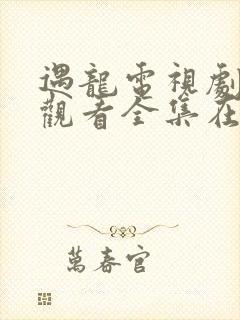 遇龍電視劇
觀看全集在
萬春官